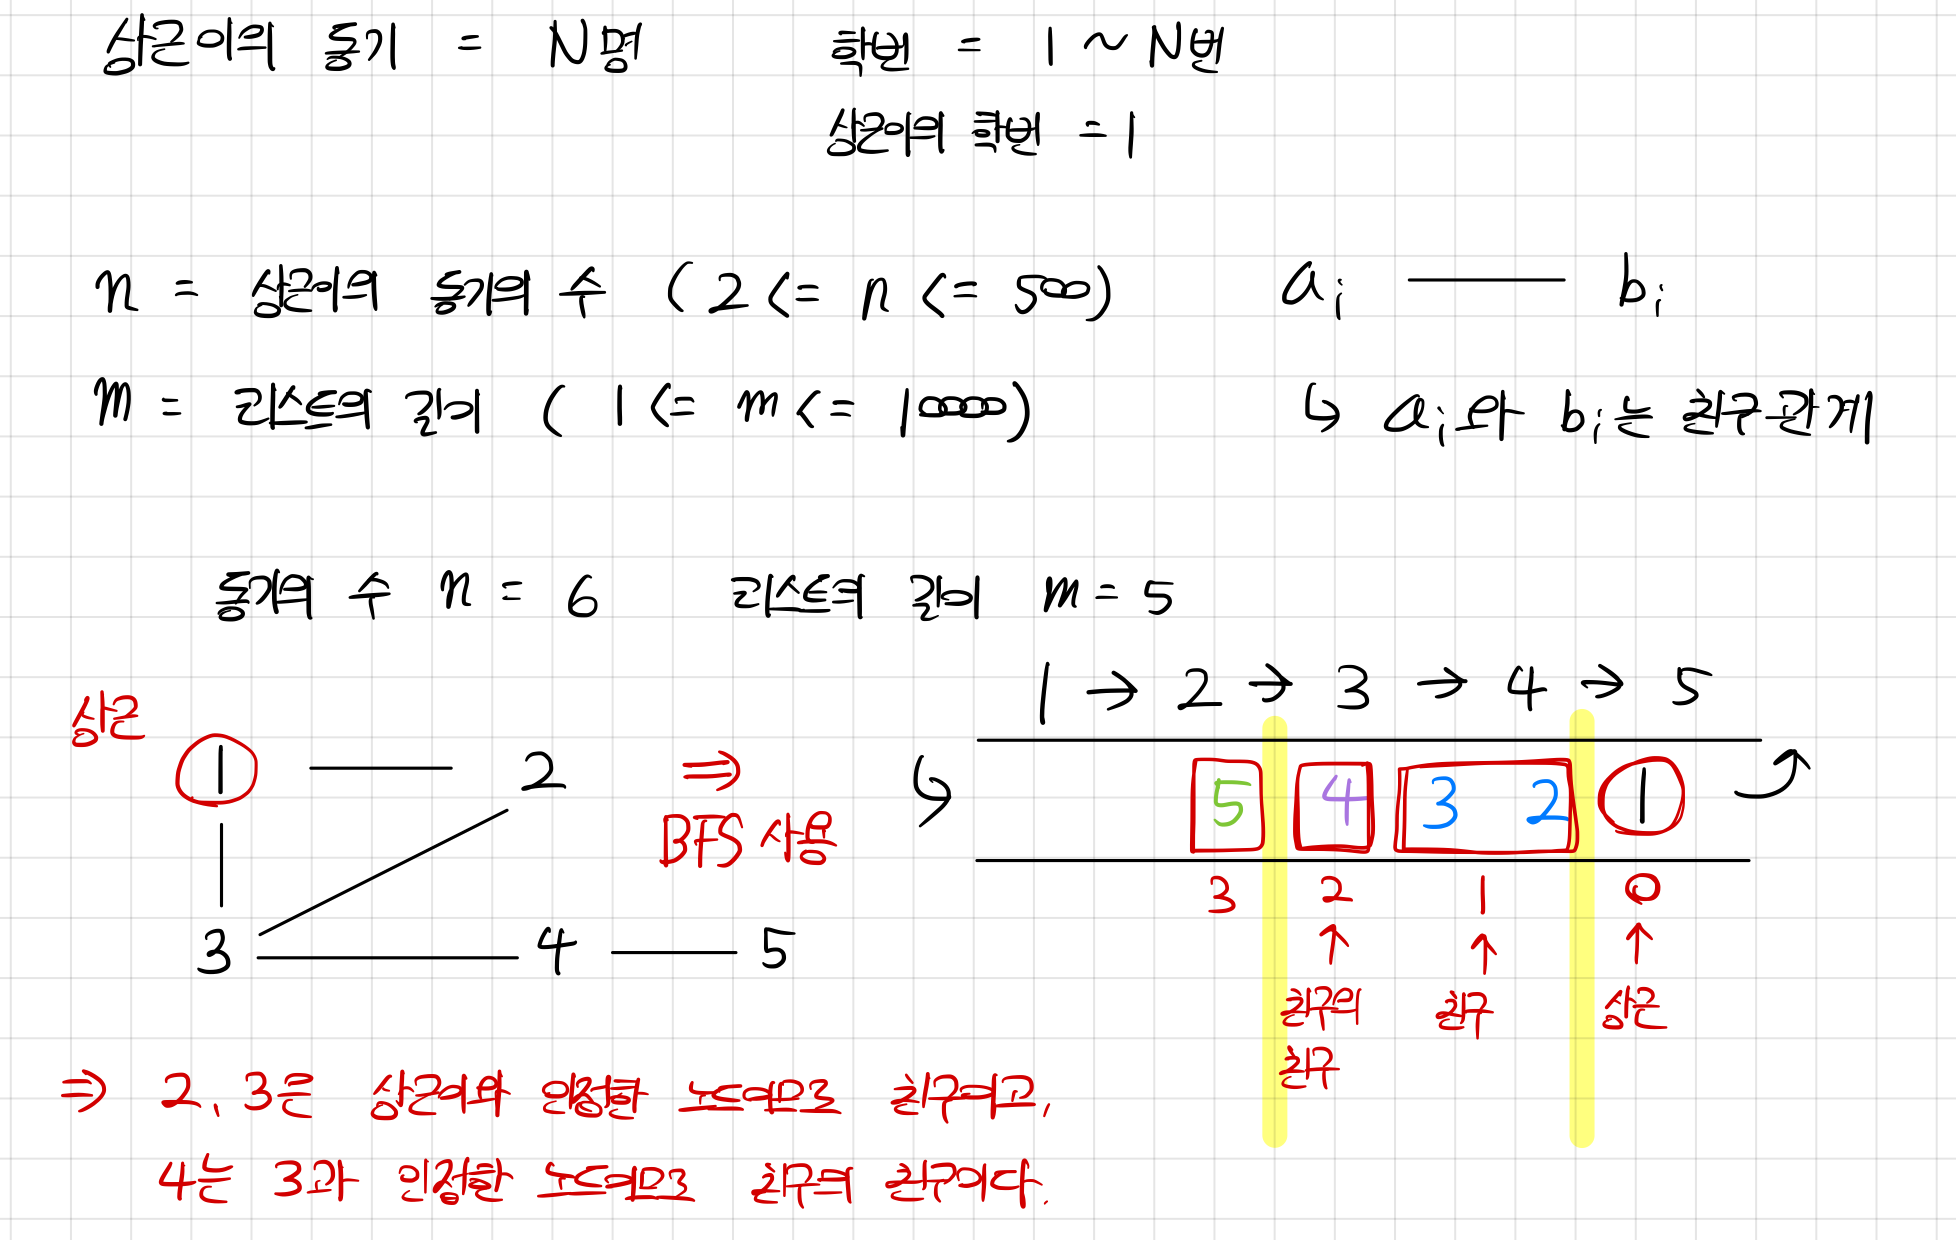 상근이의 동기 = N명 학번 = 1 ~ N번
상근이의 학번 = 1
n = 상근이의 동기의 수 ( 2 <= n <= 500)
a i —— b i
m = 리스트의 길이 ( 1 <= m <= 10000)
↳ a i 와 b i 는 친구관계
동기의 수 n = 6 리스트의 길이 m = 5
1 → 2 → 3 → 4 → 5
상근
1 —— 2
⇒ BFS 사용
3 —— 4 —— 5
5 4 3 2 1
3 2 1 0
↑ ↑ ↑
친구의 친구 상근
친구
⇒ 2, 3은 상근이와 인접한 노드이므로 친구이고,
4는 3과 인접한 노드이므로 친구의 친구이다.